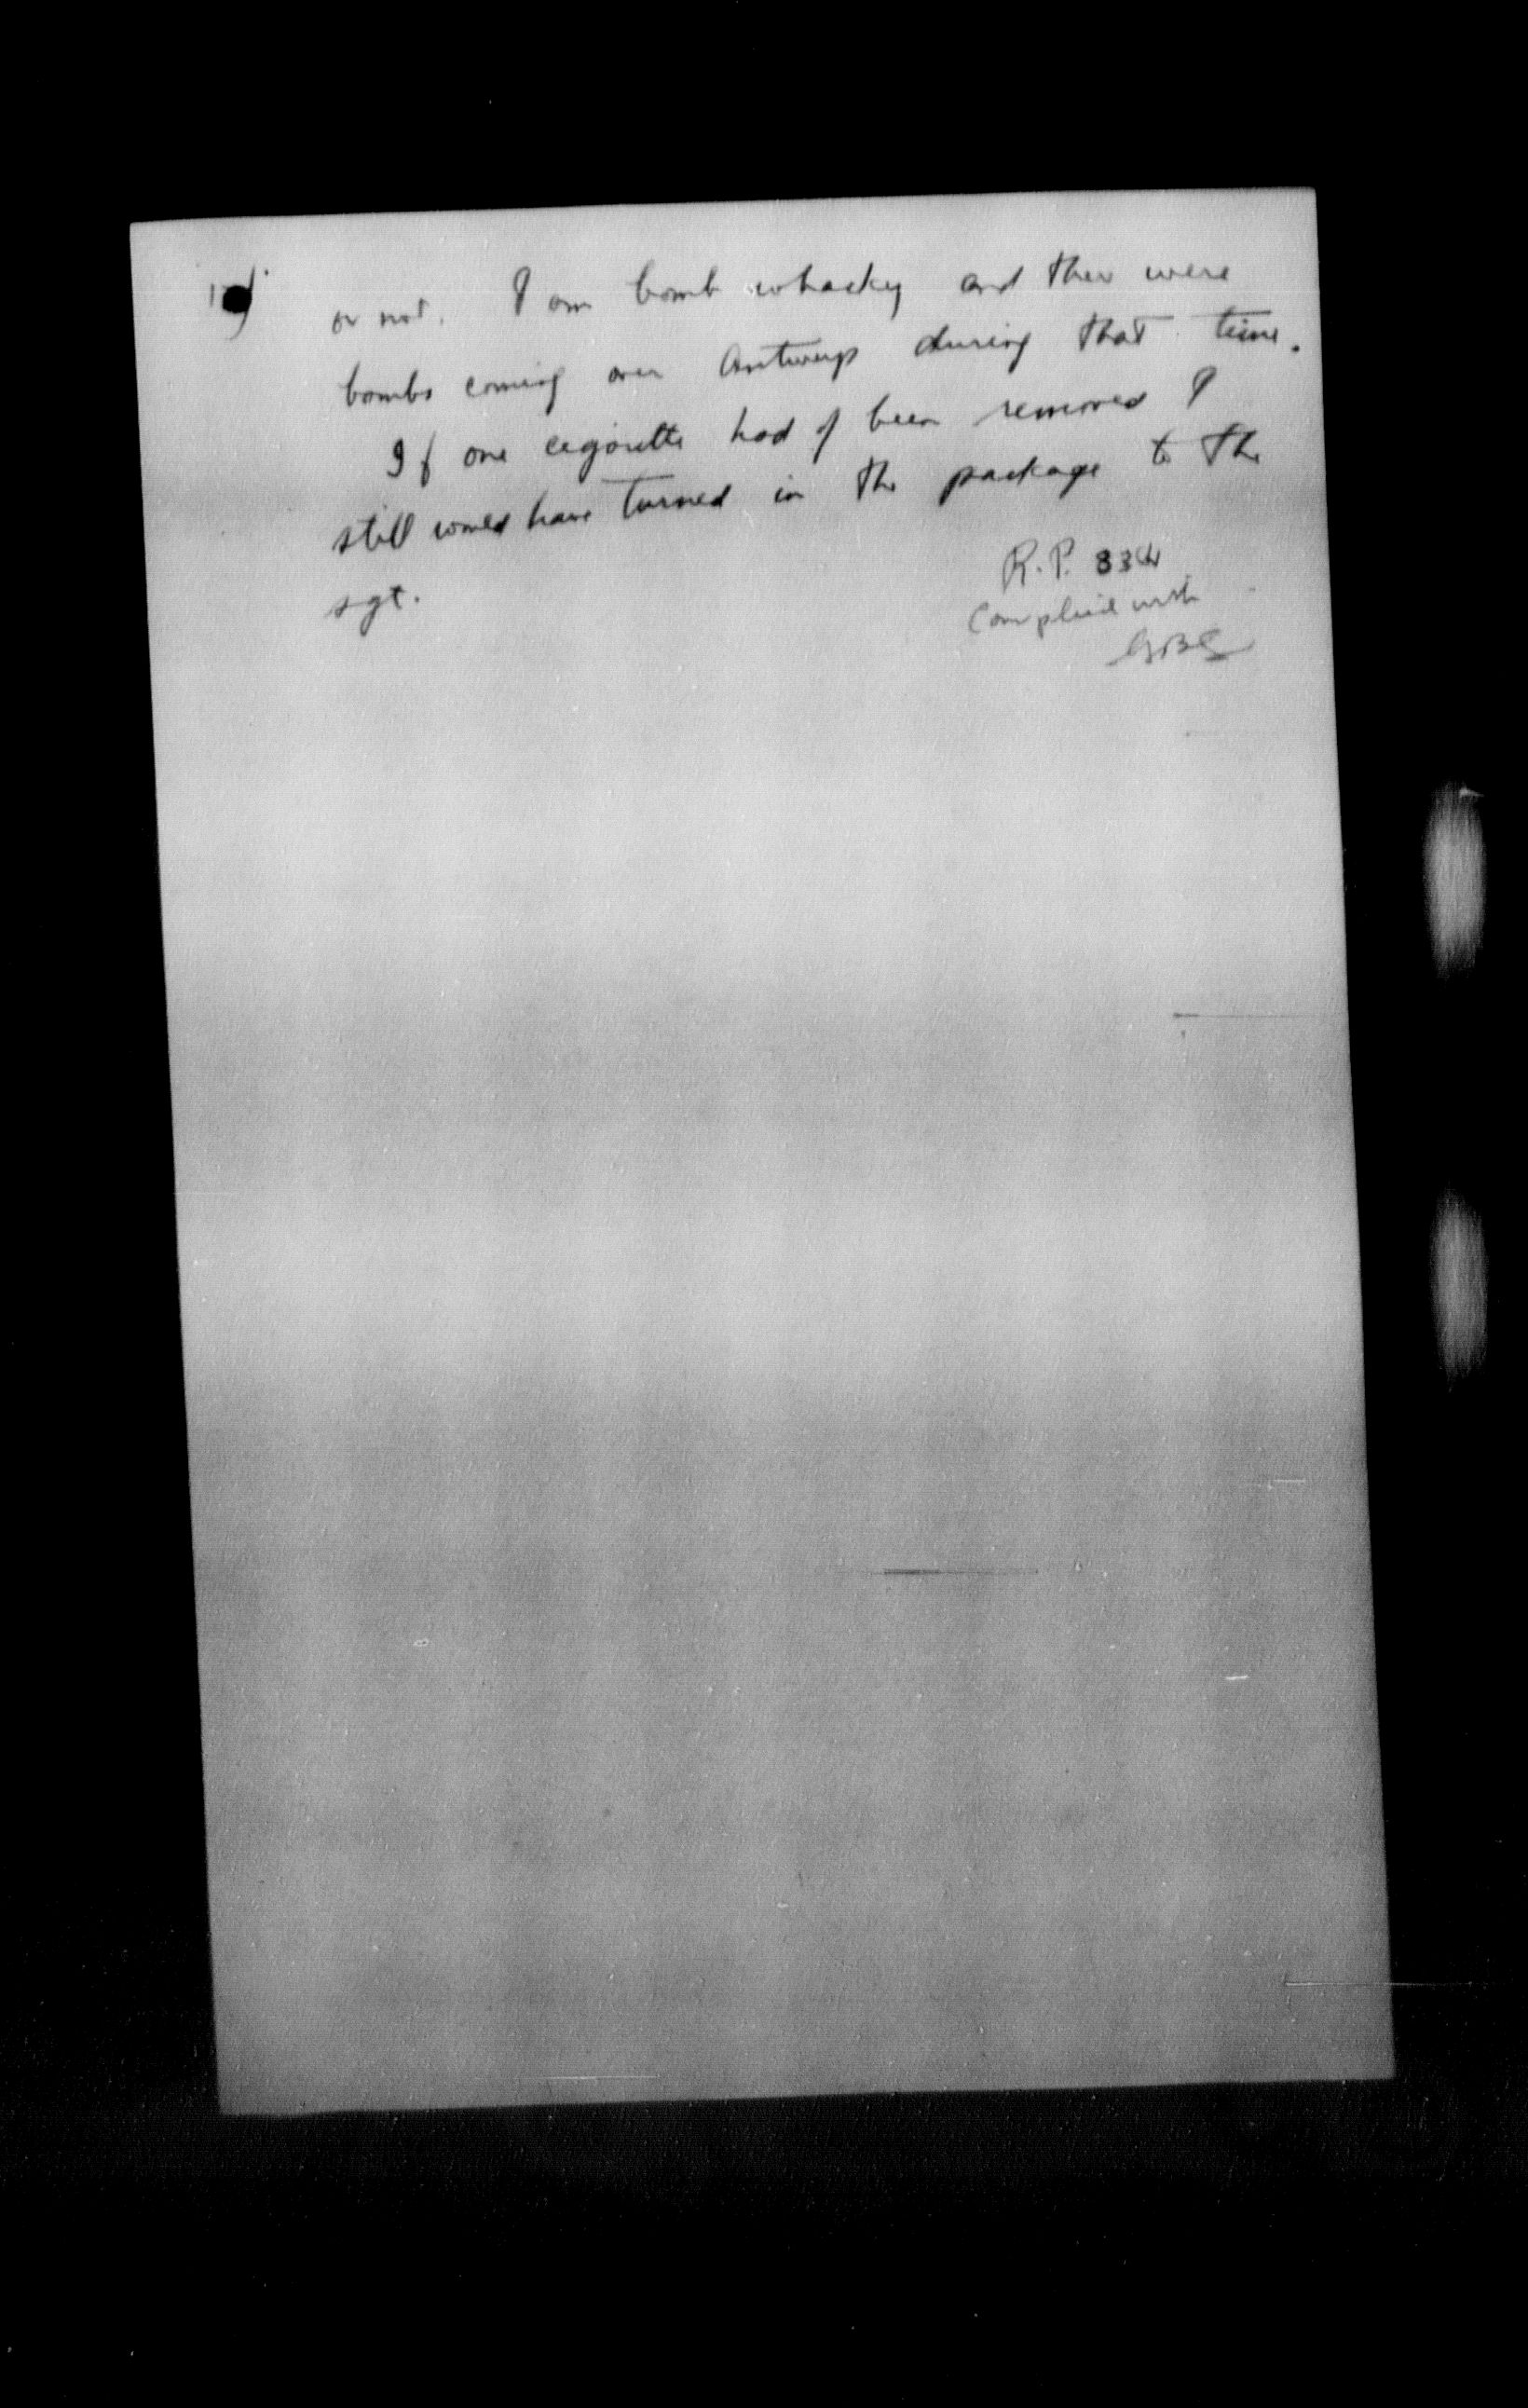 or not. I am bomb whacky and ther were
bombs coming over Antwerp during that time.
If one cigarette had of been removed I
still would have turned in the package to the
sgt.
R.P. 83
Complied with